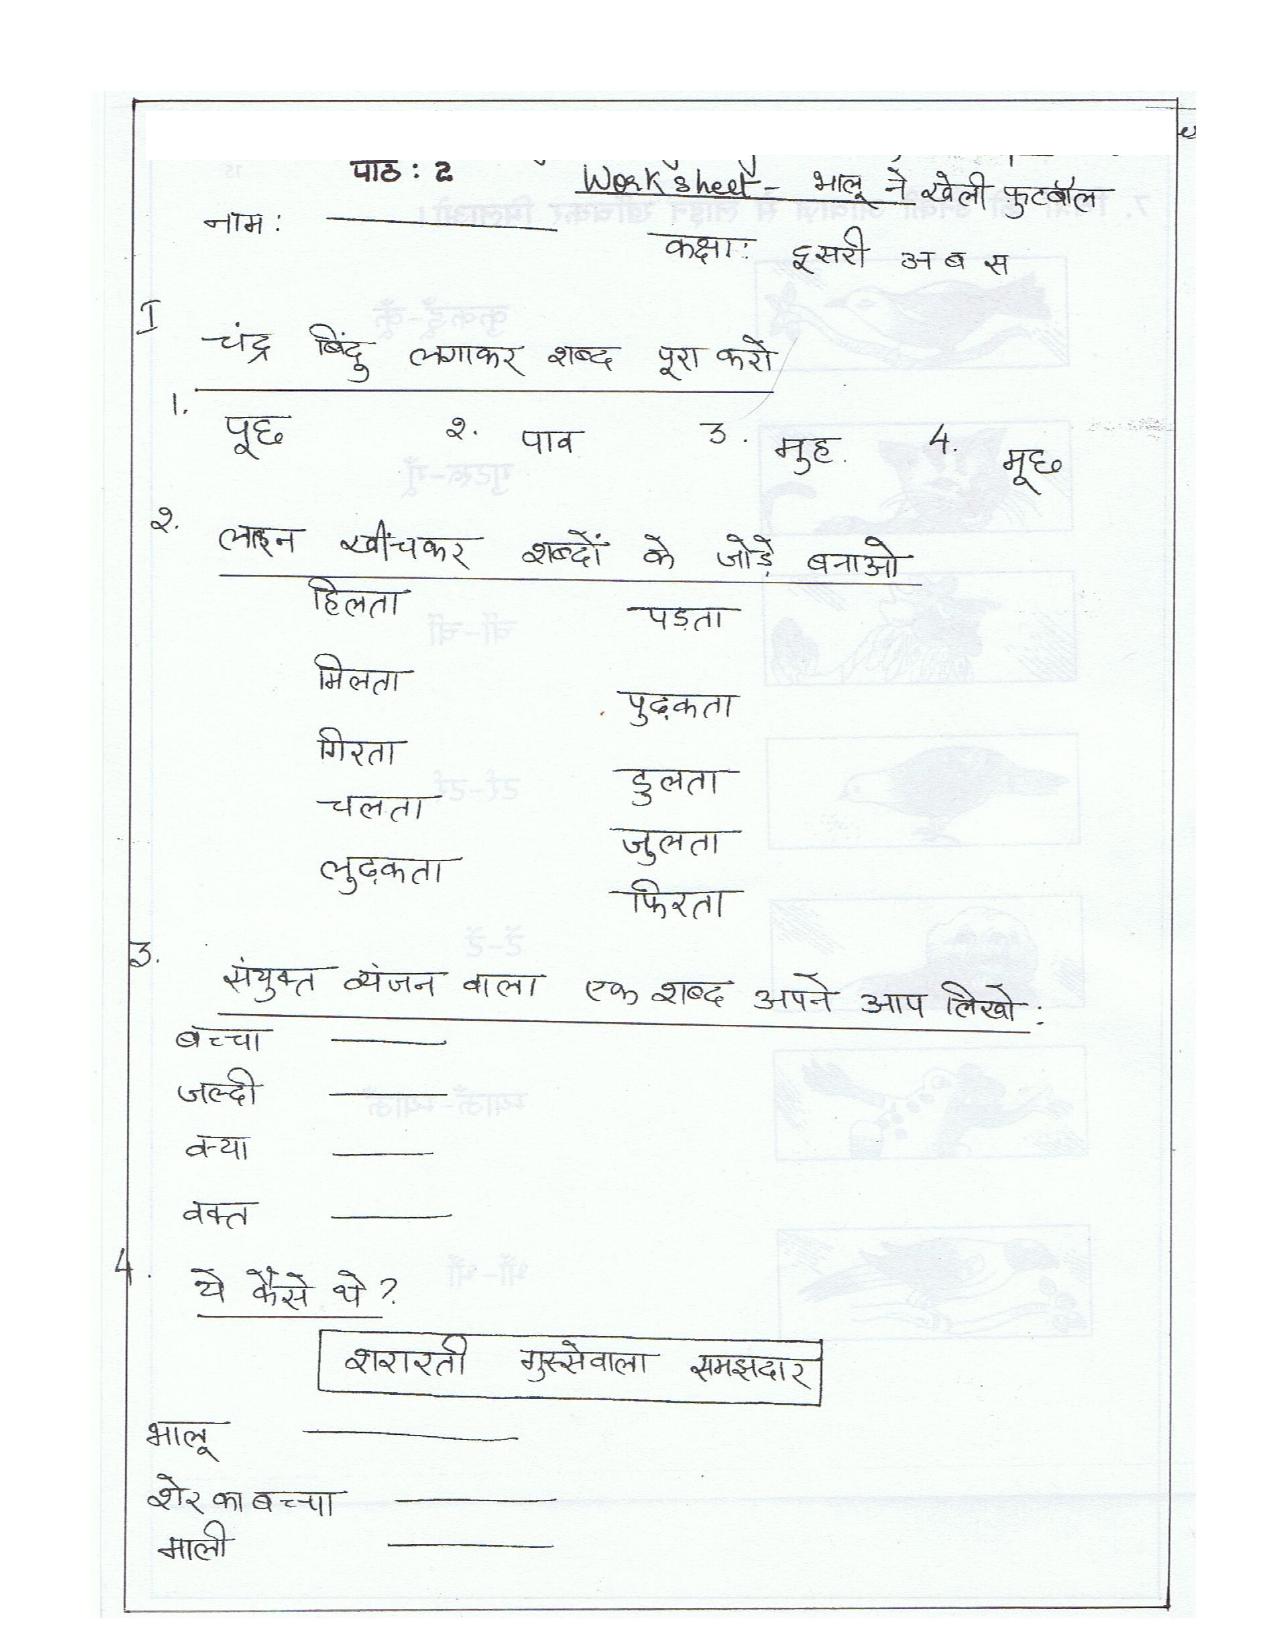 पाठ : 2 Worksheet - भालू ने खेली फुटबॉल
नाम :
कक्षा: दूसरी अ ब स
I चंद्र बिंदु लगाकर शब्द पूरा करो
1. पूछ २. पाव 3. मुह 4. मूछ
२. लाइन खींचकर शब्दों के जोड़े बनाओ
हिलता पड़ता
मिलता पुढ़कता
गिरता डुलता
चलता जुलता
लुढ़कता फिरता
3. संयुक्त व्यंजन वाला एक शब्द अपने आप लिखो :
बच्चा
जल्दी
क्या
वक्त
4. ये कैसे थे ?
शरारती गुस्सेवाला समझदार
भालू
शेर का बच्चा
माली